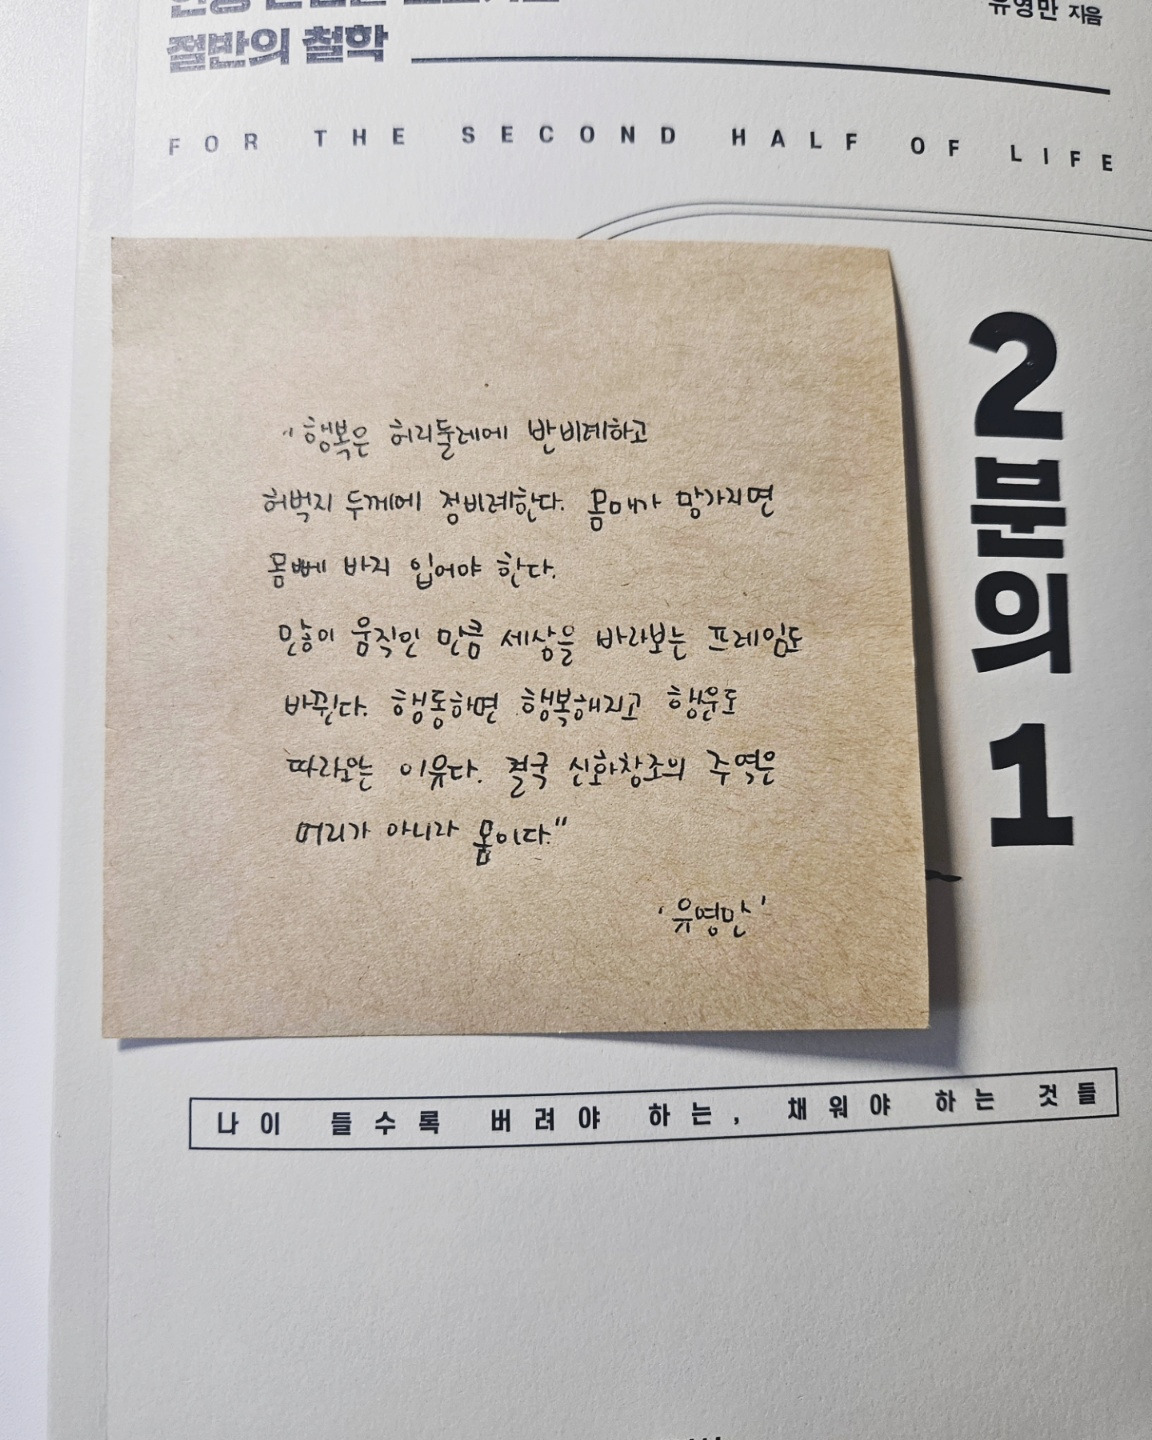 절반의 철학
유영만 지음
FOR THE SECOND HALF OF LIFE
2분의 1
"행복은 허리둘레에 반비례하고
허벅지 두께에 정비례한다. 몸매가 망가지면
몸뻬 바지 입어야 한다.
많이 움직인 만큼 세상을 바라보는 프레임도
바뀐다. 행동하면 행복해지고 행운도
따라오는 이유다. 결국 신화창조의 주역은
머리가 아니라 몸이다."
'유영만'
나이 들수록 버려야 하는, 채워야 하는 것들